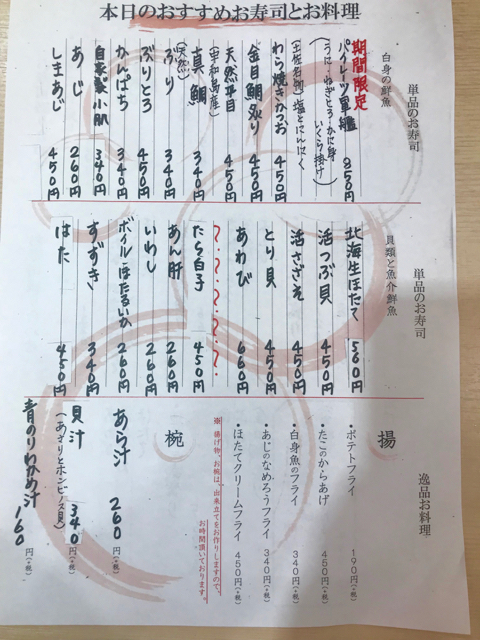 本日のおすすめお寿司とお料理
単品のお寿司
白身の鮮魚
期間限定
パイレーツ軍艦 850円
(うに・ねぎとろ・かに身
いくら掛け)
わら焼きかつお 450円
(土佐名物) 塩とにんにく
金目鯛炙り 450円
天然平目 450円
真鯛 340円
(宇和島産)
ぶり 340円
(天然)
ぶりとろ 450円
かんぱち 340円
自家製小肌 340円
あじ 260円
しまあじ 450円
単品のお寿司
貝類と魚介鮮魚
北海生ほたて 560円
活つぶ貝 450円
活さざえ 450円
とり貝 450円
あわび 660円
たら白子 450円
あん肝 260円
いわし 260円
ボイルほたるいか 260円
すずき 340円
はた 450円
逸品お料理
揚
・ポテトフライ 190円(+税)
・たこのからあげ 450円(+税)
・白身魚のフライ 340円(+税)
・あじのなめろうフライ 340円(+税)
・ほたてクリームフライ 450円(+税)
※ 揚げ物、お椀は、出来立てをお作りしますので、
お時間頂いております。
椀
あら汁 260円(+税)
貝汁 340円(+税)
(あさりとホンビノス貝)
青のりわかめ汁 160円(+税)